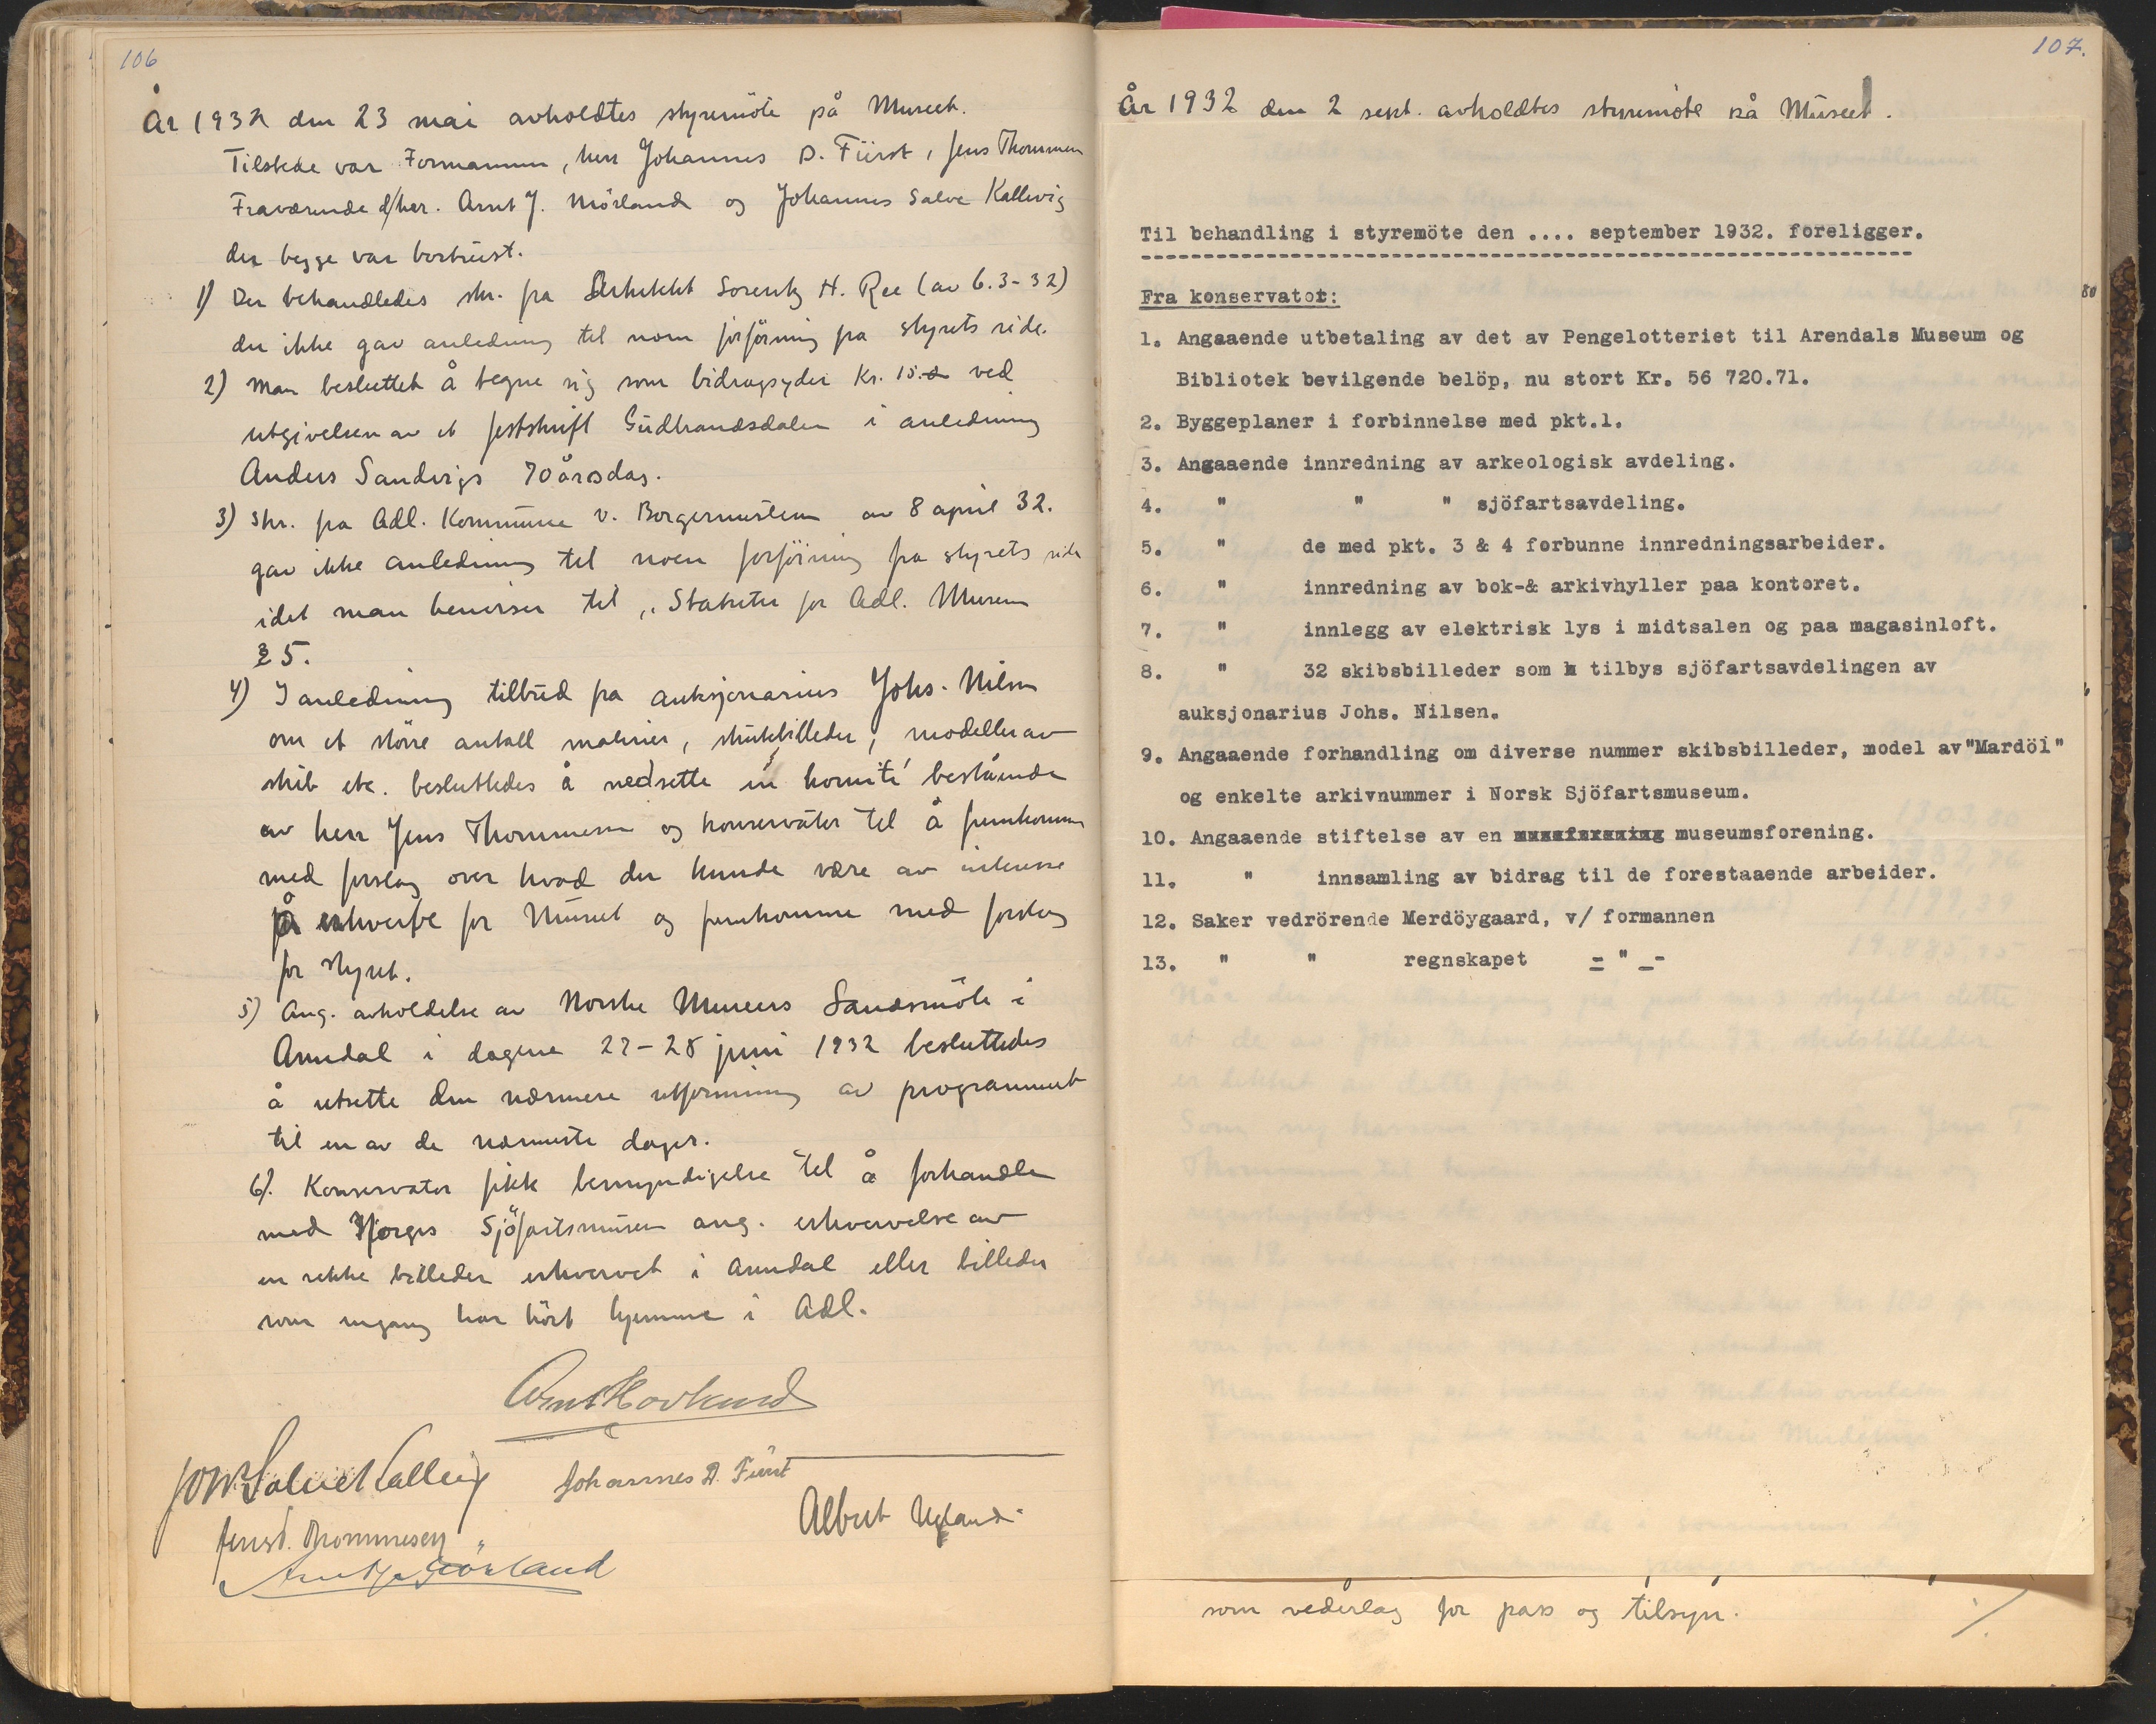 106
År 1932 den 23 mai avholdtes styremöte på Museet.
Tilstede var Formannen, herr Johannes D. Fürst, Jens Thommesen
Fraværende d/her. Arnt J. Mörland og Johannes Salve Kallevig
der begge var bortreist.
1) Der behandledes skr. fra Arkitekt Sorentz H. Ree (av 6.3-32)
der ikke gav anledning til noen forföining fra styrets side.
2) Man besluttet å tegne sig som bidragsyder Kr. 15.- ved
utgivelsen av et festskrift Gudbrandsdalen i anledning
Anders Sandvigs 70årsdag.
3) Skr. fra Adl. Kommune v. Borgermesteren av 8 april 32.
gav ikke anledning til noen forföining fra styrets side
idet man henviser til „Statuter for Adl. Museum
§ 5.
4) I anledning tilbud fra auksjonarius Johs. Nilsen
om et större antall malerier, skutebilleder, modeller av
skib etc. besluttedes å nedsette en komité bestående
av herr Jens Thommesen og konservator til å fremkomme
med forslag over hvad der kunde være av interesse
å erhverve for Museet og fremkomme med forslag
for styret.
5) Ang. avholdelse av Norske Museers Landsmöte i
Arendal i dagene 27-28 juni 1932 besluttedes
å utsette den nærmere utformning av programmet
til en av de nærmeste dager.
6). Konservator fikk bemyndigelse til å forhandle
med Norges Sjöfartsmuseum ang. erhvervelse av
en rekke billeder erhvervet i Arendal eller billeder
som engang har hört hjemme i Adl.
Johs Salve Kallevig
Johannes D. Fürst
Albert Ugland
Jens T. Thommesen
Arnt J. Mörland
107.
År 1932 den 2 sept. avholdtes styremöte på Museet.
Til behandling i styremöte den .... september 1932. foreligger.
Fra konservator:
80
1. Angaaende utbetaling av det av Pengelotteriet til Arendals Museum og
Bibliotek bevilgende belöp, nu stort Kr. 56 720.71.
2. Byggeplaner i forbinnelse med pkt.1.
3. Angaaende innredning av arkeologisk avdeling.
4. " " " sjöfartsavdeling.
5. " de med pkt. 3 & 4 forbunne innredningsarbeider.
6. " innredning av bok-& arkivhyller paa kontoret.
7. " innlegg av elektrisk lys i midtsalen og paa magasinloft.
8. " 32 skibsbilleder som tilbys sjöfartsavdelingen av
auksjonarius Johs. Nilsen.
9. Angaaende forhandling om diverse nummer skibsbilleder, model av "Mardöl"
og enkelte arkivnummer i Norsk Sjöfartsmuseum.
10. Angaaende stiftelse av en museumsforening.
11. " innsamling av bidrag til de forestaaende arbeider.
12. Saker vedrörende Merdöygaard, v/ formannen
13. " " regnskapet = " _-
som vederlag for pass og tilsyn.